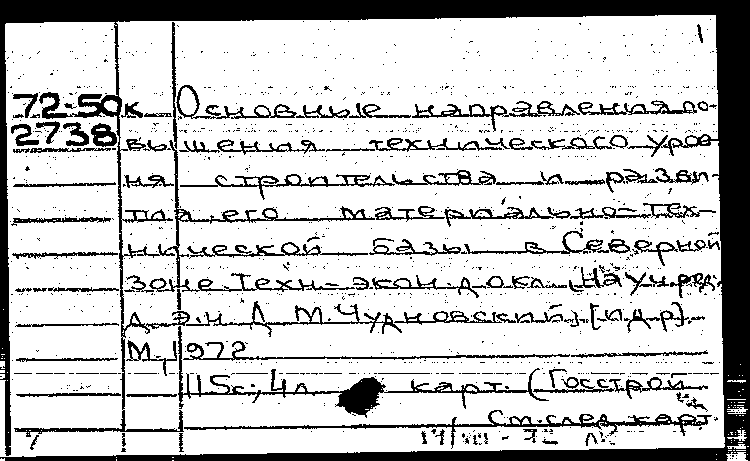 1
72-50к Основные направления по-
2738 вышения технического уров-
ня строительства и разви-
тия его материально-тех-
нической базы в Северной
зоне Техн-экон докл. [Науч ред.
д. э. н Д М. Чудновский, [и др].
М., 1972
115с; 4л карт. (Госстрой
См.след карт.
7